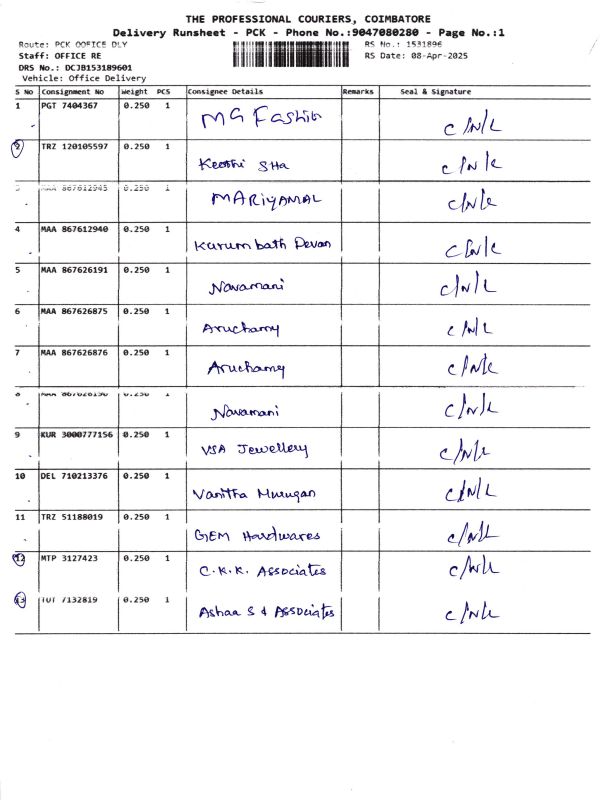 THE PROFESSIONAL COURIERS, COIMBATORE
Delivery Runsheet - PCK - Phone No.:9047080280 - Page No.:1
Route: PCK OOFICE DLY RS No.: 1531896
Staff: OFFICE RE RS Date: 08-Apr-2025
DRS No.: DCJB153189601
Vehicle: Office Delivery
S No Consignment No Weight PCS Consignee Details Remarks Seal & Signature
1 PGT 7404367 0.250 1 MG Fashion C/N/L
2 TRZ 120105597 0.250 1 Keethi Sha C/N/L
3 MAA 867612945 0.250 1 MARIYAMAL C/N/L
4 MAA 867612940 0.250 1 Karumbath Devan C/N/L
5 MAA 867626191 0.250 1 Navamani C/N/L
6 MAA 867626875 0.250 1 Aruchamy C/N/L
7 MAA 867626876 0.250 1 Aruchamy C/N/L
8 MAA 867626190 0.250 1 Navamani C/N/L
9 KUR 3000777156 0.250 1 VSA Jewellery C/N/L
10 DEL 710213376 0.250 1 Vanitha Murugan C/N/L
11 TRZ 51188019 0.250 1 GEM Hardwares C/N/L
12 MTP 3127423 0.250 1 C.K.K. Associates C/N/L
13 7132819 0.250 1 Ashaa S & Associates C/N/L